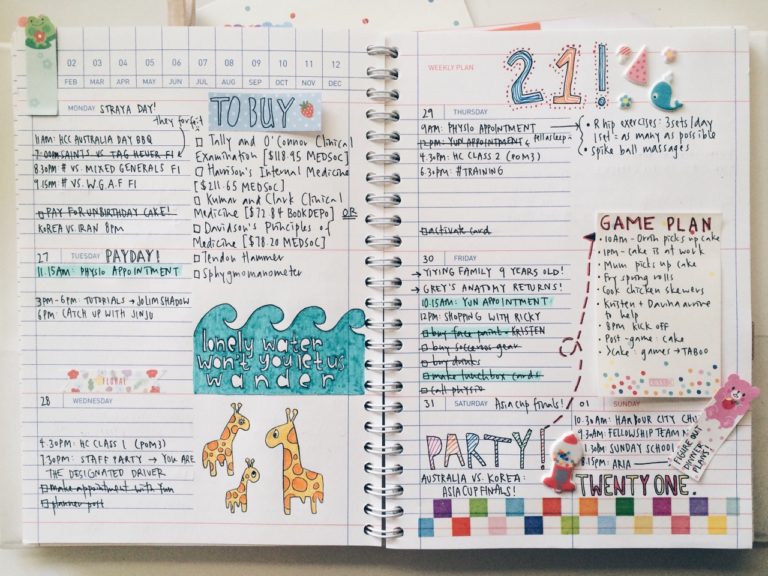 02 03 04 05 06 07 08 09 10 11 12
FEB MAR APR MAY JUN JUL AUG SEP OCT NOV DEC
MONDAY STRAYA DAY!
they forfeit
11AM: HCC AUSTRALIA DAY BBQ
7:00PM SAINTS VS TAG HEUER F1
8:30PM # VS. MIXED GENERALS F1
9:15PM # VS. W.G.A.F F1
□ PAY FOR UNBIRTHDAY CAKE!
KOREA VS IRAN 8PM
27 TUESDAY PAYDAY!
11.15AM: PHYSIO APPOINTMENT
3PM-6PM: TUTORIALS → JOLIMSHADOW
6PM: CATCH UP WITH JINJU
FLORAL
28 WEDNESDAY
4.30PM: HC CLASS 1 (POM3)
7.30PM: STAFF PARTY → YOU ARE
THE DESIGNATED DRIVER
□ make appointment with Yun
□ planner post
TO BUY
□ Tally and O'Connor Clinical
Examination [$118.95 MEDSOC]
□ Harrison's Internal Medicine
[$211.65 MEDSOC]
□ Kumar and Clark Clinical
Medicine [$72.84 BOOKDEPO] OR
□ Davidson's Principles of
Medicine [$78.20 MEDSOC]
□ Tendon Hammer
□ Sphygmomanometer
lonely water
won't you let us
wander
WEEKLY PLAN
21!
29 THURSDAY
9AM: PHYSIO APPOINTMENT
12PM: YUN APPOINTMENT fell asleep
4.30PM: HC CLASS 2 (POM3)
6.30PM: #TRAINING
□ activate card
• R hip exercises: 3 sets/day
1 set = as many as possible
• spike ball massages
30 FRIDAY
→ YIYING FAMILY 9 YEARS OLD!
→ GREY'S ANATOMY RETURNS!
10.15AM: YUN APPOINTMENT
12PM: SHOPPING WITH RICKY
□ buy face paint → KRISTEN
□ buy socceroos gear
□ buy drinks
□ make lunchbox cards
□ call physio
31 SATURDAY Asia cup finals!
PARTY!
AUSTRALIA VS. KOREA:
ASIA CUP FINALS!
GAME PLAN
• 10AM - Omma picks up cake
• 1PM - cake is at work
• Mum picks up cake
• Fry spring rolls
• Cook chicken skewers
• Kristen + Davina arrive
to help
• 8PM kick off
• Post-game: cake
• >cake: games → TABOO
01 SUNDAY
10.30AM: HARBOUR CITY CH
9.30AM: FELLOWSHIP TEAM
1.30PM SUNDAY SCHOOL
8.15PM: ARIA
FIGURE OUT
DINNER
PLANS!
TWENTY ONE.